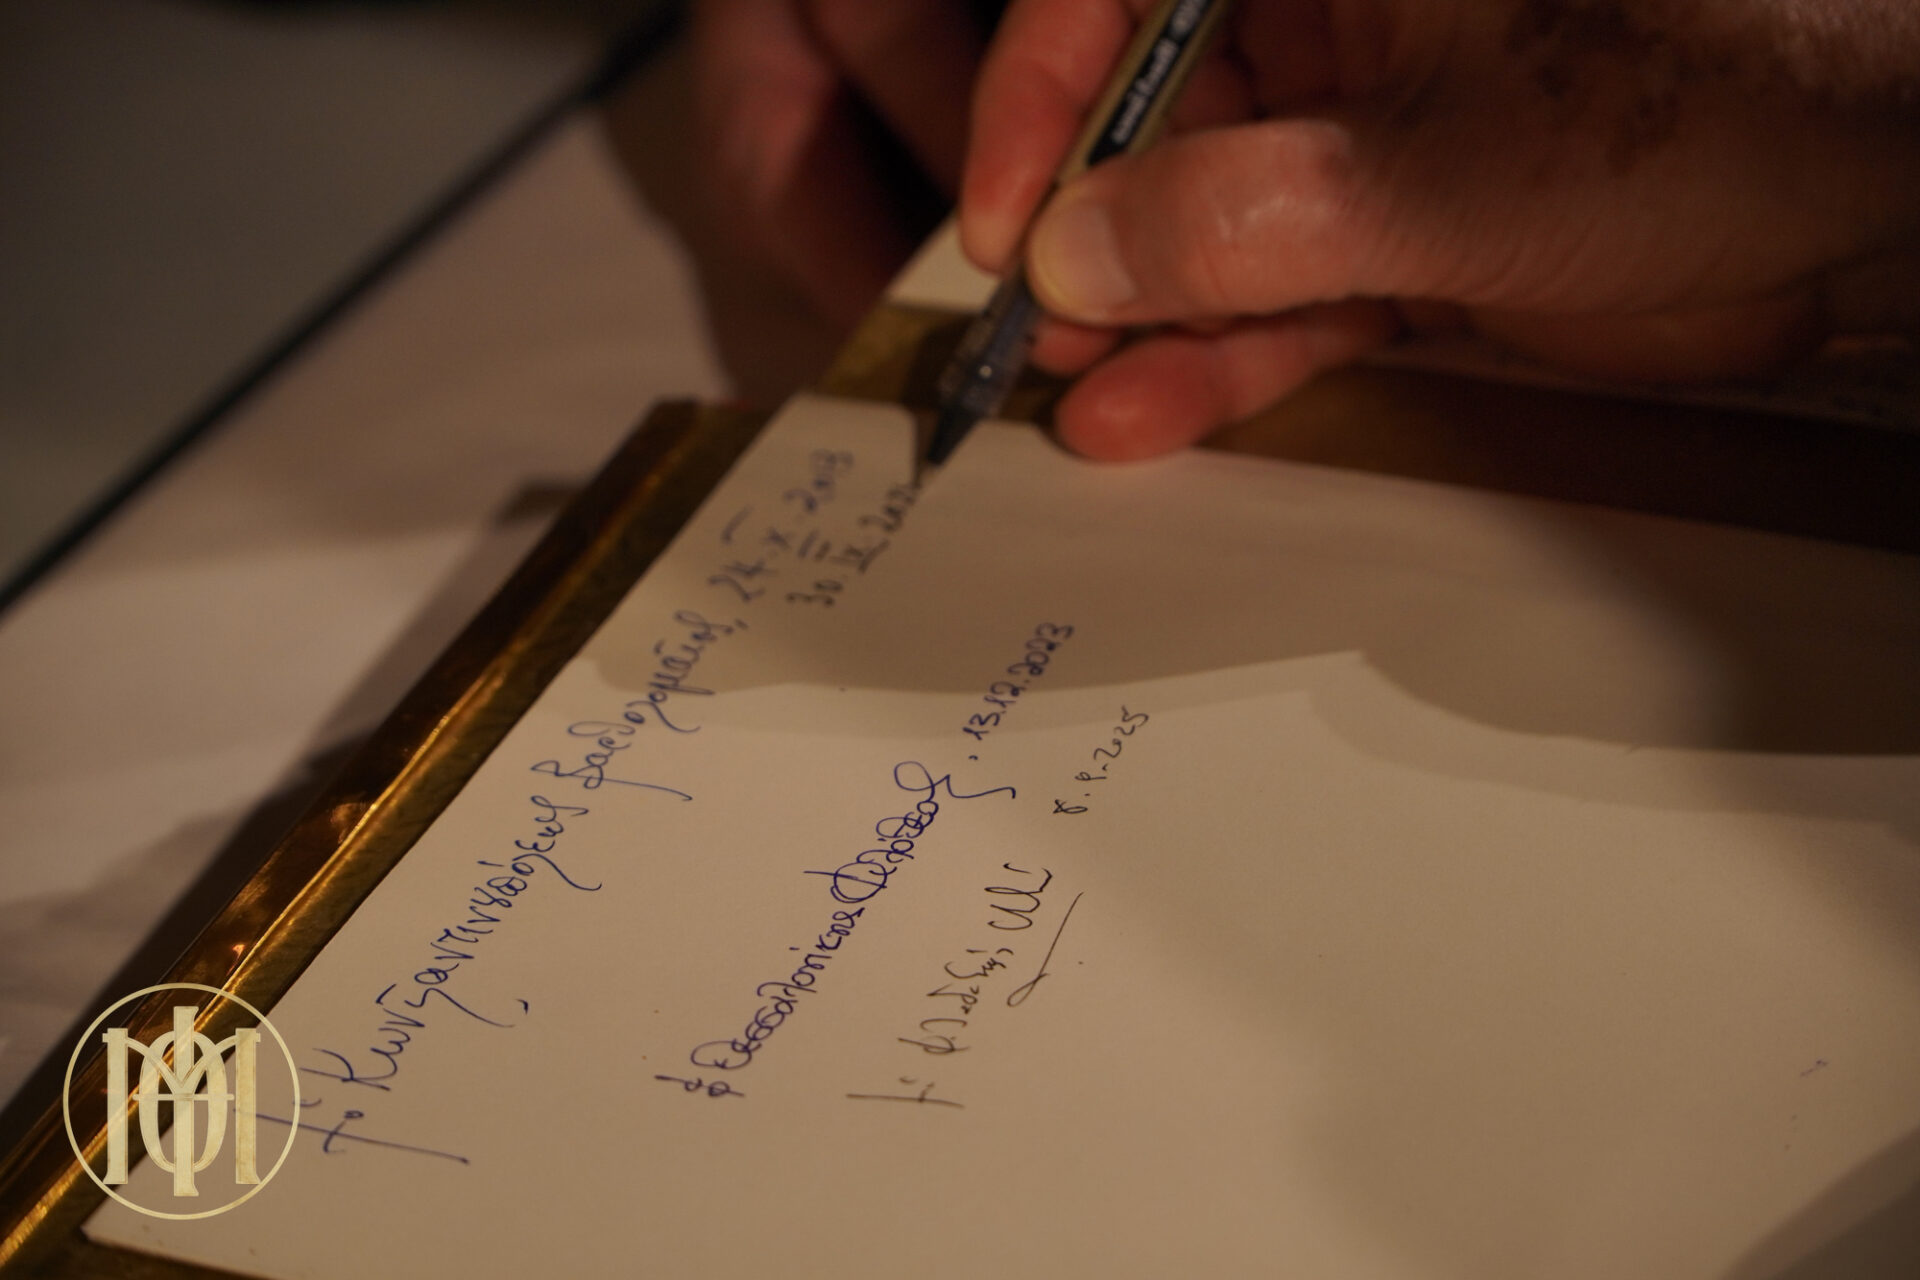 † ὁ Κωνσταντινουπόλεως Βαρθολομαῖος, 24.X.2013
30.IX.202
† ὁ Θεσσαλονίκης Φιλόθεος, 13.12.2023
† ὁ
2025
uni-ball